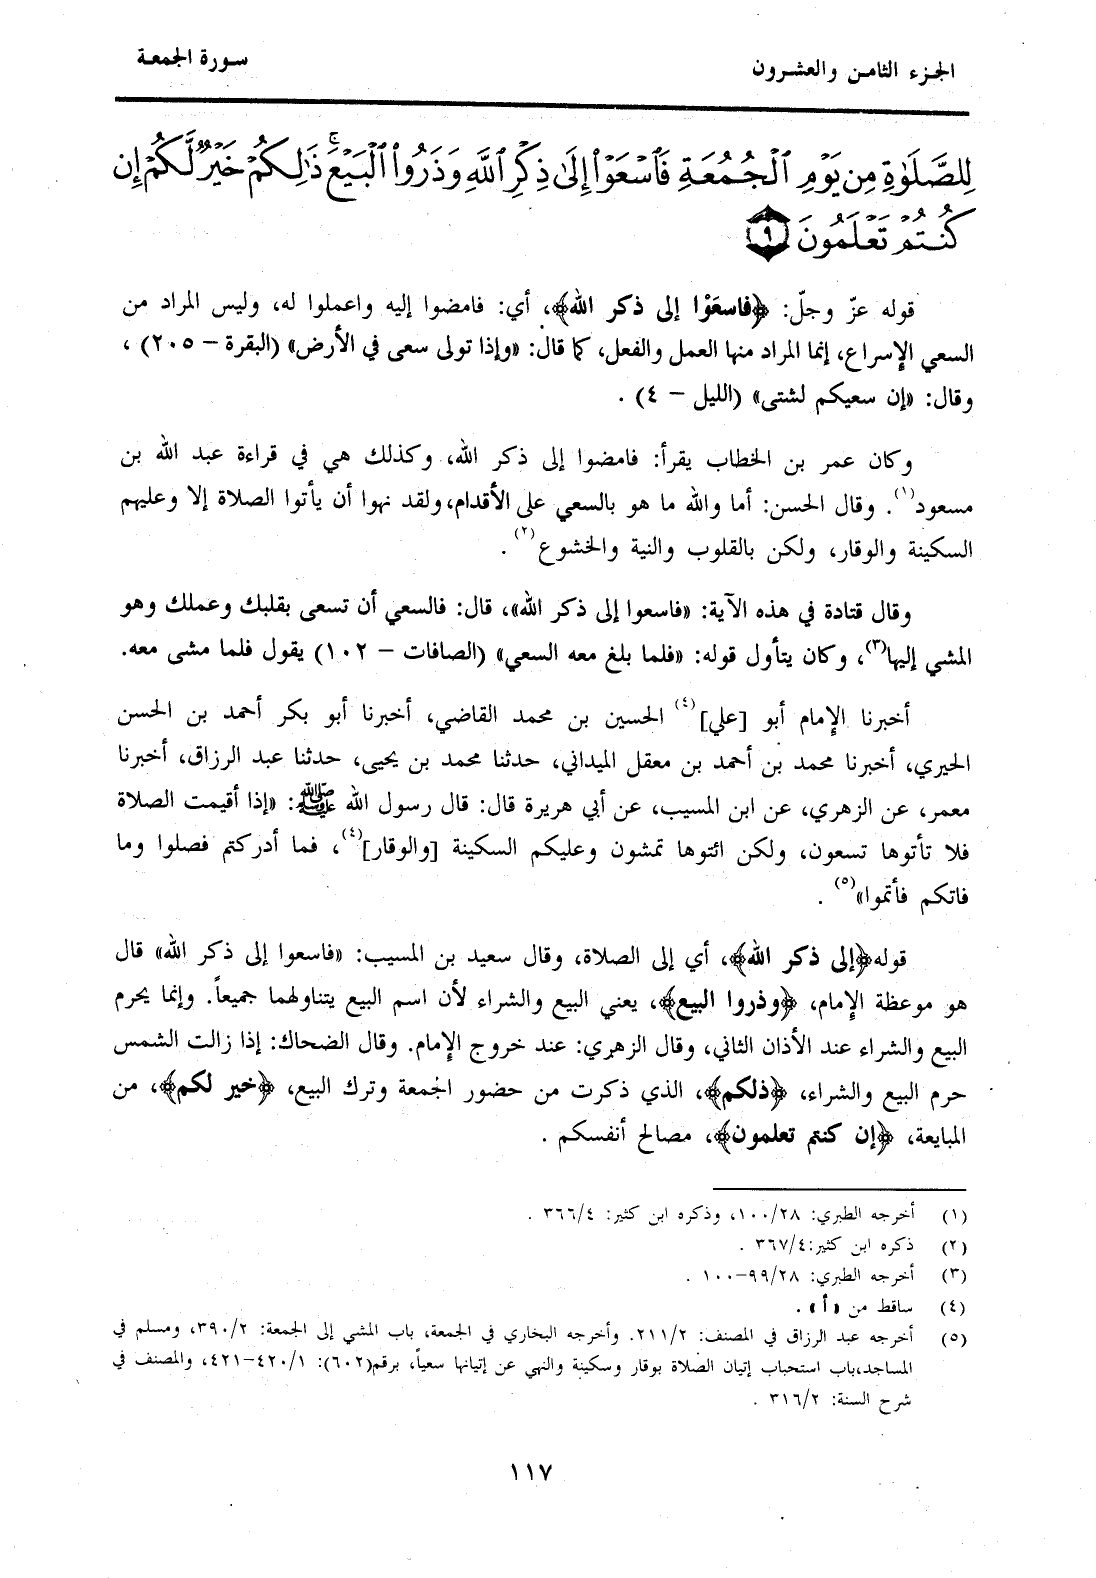 الجزء الثامن والعشرون
سورة الجمعة
لِلصَّلَوٰةِ مِن يَوْمِ ٱلْجُمُعَةِ فَٱسْعَوْا۟ إِلَىٰ ذِكْرِ ٱللَّهِ وَذَرُوا۟ ٱلْبَيْعَ ۚ ذَٰلِكُمْ خَيْرٌ لَّكُمْ إِن
كُنتُمْ تَعْلَمُونَ ٩
قوله عزّ وجلّ: ﴿فاسعَوْا إلى ذكر الله﴾، أي: فامضوا إليه واعملوا له، وليس المراد من
السعي الإسراع، إنما المراد منها العمل والفعل، كما قال: «وإذا تولى سعى في الأرض» (البقرة – ٢٠٥) ،
وقال: «إن سعيكم لشتى» (الليل – ٤) .
وكان عمر بن الخطاب يقرأ: فامضوا إلى ذكر الله، وكذلك هي في قراءة عبد الله بن
مسعود(١). وقال الحسن: أما والله ما هو بالسعي على الأقدام، ولقد نهوا أن يأتوا الصلاة إلا وعليهم
السكينة والوقار، ولكن بالقلوب والنية والخشوع(٢) .
وقال قتادة في هذه الآية: «فاسعوا إلى ذكر الله»، قال: فالسعي أن تسعى بقلبك وعملك وهو
المشي إليها(٣)، وكان يتأول قوله: «فلما بلغ معه السعي» (الصافات – ١٠٢) يقول فلما مشى معه.
أخبرنا الإمام أبو [علي](٤) الحسين بن محمد القاضي، أخبرنا أبو بكر أحمد بن الحسن
الحيري، أخبرنا محمد بن أحمد بن معقل الميداني، حدثنا محمد بن يحيى، حدثنا عبد الرزاق، أخبرنا
معمر، عن الزهري، عن ابن المسيب، عن أبي هريرة قال: قال رسول الله ﷺ: «إذا أقيمت الصلاة
فلا تأتوها تسعون، ولكن ائتوها تمشون وعليكم السكينة [والوقار](٤)، فما أدركتم فصلوا وما
فاتكم فأتموا»(٥) .
قوله ﴿إلى ذكر الله﴾، أي إلى الصلاة، وقال سعيد بن المسيب: «فاسعوا إلى ذكر الله» قال
هو موعظة الإمام، ﴿وذروا البيع﴾، يعني البيع والشراء لأن اسم البيع يتناولهما جميعاً. وإنما يحرم
البيع والشراء عند الأذان الثاني، وقال الزهري: عند خروج الإمام. وقال الضحاك: إذا زالت الشمس
حرم البيع والشراء، ﴿ذلكم﴾، الذي ذكرت من حضور الجمعة وترك البيع، ﴿خير لكم﴾، من
المبايعة، ﴿إن كنتم تعلمون﴾، مصالح أنفسكم .
(١) أخرجه الطبري: ١٠٠/٢٨، وذكره ابن كثير: ٣٦٦/٤ .
(٢) ذكره ابن كثير: ٣٦٧/٤ .
(٣) أخرجه الطبري: ٩٩/٢٨–١٠٠ .
(٤) ساقط من «أ» .
(٥) أخرجه عبد الرزاق في المصنف: ٢١١/٢. وأخرجه البخاري في الجمعة، باب المشي إلى الجمعة: ٣٩٠/٢، ومسلم في
المساجد،باب استحباب إتيان الصلاة بوقار وسكينة والنهي عن إتيانها سعياً، برقم(٦٠٢): ٤٢٠/١–٤٢١، والمصنف في
شرح السنة: ٣١٦/٢ .
١١٧